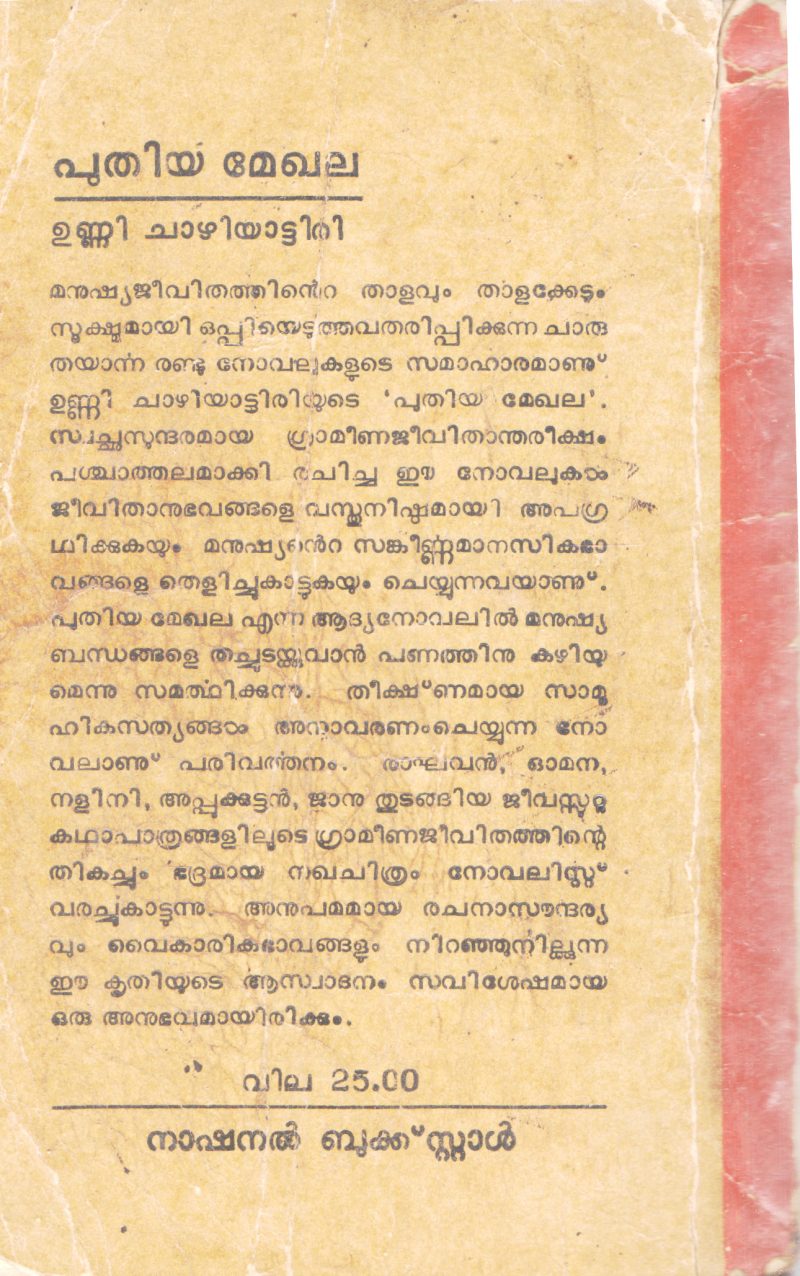 പുതിയ മേഖല
ഉണ്ണി ചാഴിയാട്ടിരി
മനുഷ്യജീവിതത്തിൻെറ താളവും താളക്കേടും
സൂക്ഷ്മമായി ഒപ്പിയെടുത്തവതരിപ്പിക്കുന്ന ചാരു
തയാർന്ന രണ്ടു നോവലുകളുടെ സമാഹാരമാണു്
ഉണ്ണി ചാഴിയാട്ടിരിയുടെ 'പുതിയ മേഖല'.
സ്വച്ഛസുന്ദരമായ ഗ്രാമീണജീവിതാന്തരീക്ഷം
പശ്ചാത്തലമാക്കി രചിച്ച ഈ നോവലുകൾ
ജീവിതാനുഭവങ്ങളെ വസ്തുനിഷ്ഠമായി അപഗ്ര
ഥിക്കുകയും മനുഷ്യൻെറ സങ്കീർണ്ണമാനസികഭാ
വങ്ങളെ തെളിച്ചുകാട്ടുകയും ചെയ്യുന്നവയാണു്.
പുതിയ മേഖല എന്ന ആദ്യനോവലിൽ മനുഷ്യ
ബന്ധങ്ങളെ തച്ചുടയ്ക്കുവാൻ പണത്തിനു കഴിയു
മെന്നു സമർത്ഥിക്കുന്നു. തീക്ഷ്ണമായ സാമൂ
ഹികസത്യങ്ങൾ അനാവരണംചെയ്യുന്ന നോ
വലാണു് പരിവർത്തനം. രാഘവൻ, ഓമന,
നളിനി, അപ്പുക്കുട്ടൻ, ജാനു തുടങ്ങിയ ജീവസ്സുറ്റ
കഥാപാത്രങ്ങളിലൂടെ ഗ്രാമീണജീവിതത്തിന്റെ
തികച്ചും ഭദ്രമായ നഖചിത്രം നോവലിസ്റ്റ്
വരച്ചുകാട്ടുന്നു. അനുപമമായ രചനാസൗന്ദര്യ
വും വൈകാരികഭാവങ്ങളും നിറഞ്ഞുനില്ക്കുന്ന
ഈ കൃതിയുടെ ആസ്വാദനം സവിശേഷമായ
ഒരു അനുഭവമായിരിക്കും.
വില 25.00
നാഷനൽ ബുക്ക്സ്റ്റാൾ